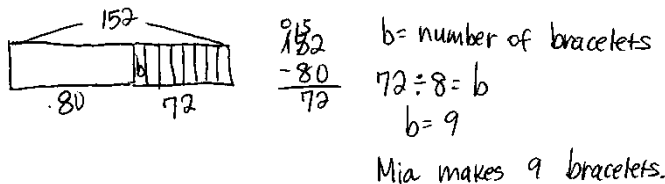 152
b
80
72
0 15
152
-80
72
b= number of bracelets
72÷8=b
b=9
Mia makes 9 bracelets.